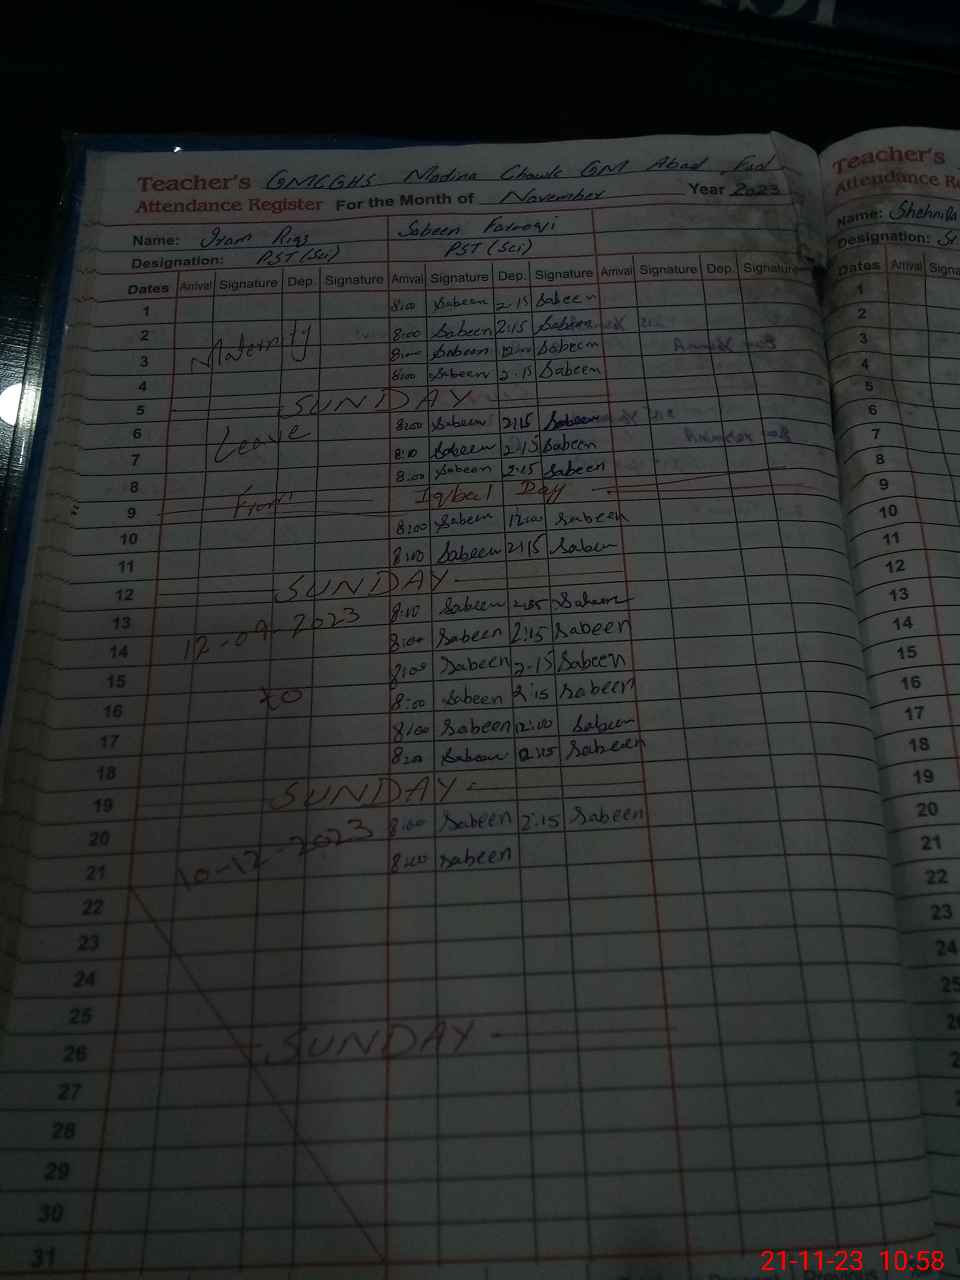 Teacher's GMCGHS Madina Chowk GM Abad Fsd
Attendance Register For the Month of November Year 2023
Name: Iram Riaz Sabeen Farooqi
Designation: PST (Sci) PST (Sci)
Dates Arrival Signature Dep. Signature Arrival Signature Dep. Signature Arrival Signature Dep. Signature
1 8:00 Sabeen 2:15 Sabeen
2 Maternity 8:00 Sabeen 2:15 Sabeen
3 8:00 Sabeen 12:00 Sabeen
4 8:00 Sabeen 2:15 Sabeen
5 SUNDAY
6 Leave 8:00 Sabeen 2:15 Sabeen
7 8:10 Sabeen 2:15 Sabeen
8 8:00 Sabeen 2:15 Sabeen
9 From Iqbal Day
10 8:00 Sabeen 12:00 Sabeen
11 8:00 Sabeen 2:15 Sabeen
12 SUNDAY
13 12-09-2023 8:10 Sabeen Sabeen
14 8:00 Sabeen 2:15 Sabeen
15 8:00 Sabeen 2:15 Sabeen
16 to 8:00 Sabeen 2:15 Sabeen
17 8:00 Sabeen 12:00 Sabeen
18 Sabeen 2:15 Sabeen
19 SUNDAY
20 8:00 Sabeen 2:15 Sabeen
21 10-12-2023 8:00 Sabeen
22
23
24
25
26 SUNDAY
27
28
29
30
31
Teacher's
Attendance Re
Name: Shehnila
Designation:
Dates Arrival Signa
1
2
3
4
5
6
7
8
9
10
11
12
13
14
15
16
17
18
19
20
21
22
23
24
25
21-11-23 10:58